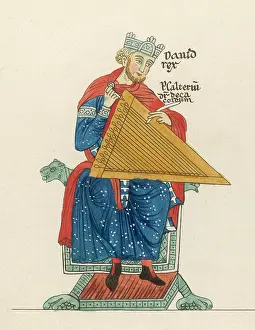 David
rex
Psalterium
dr̄ deca
cordum